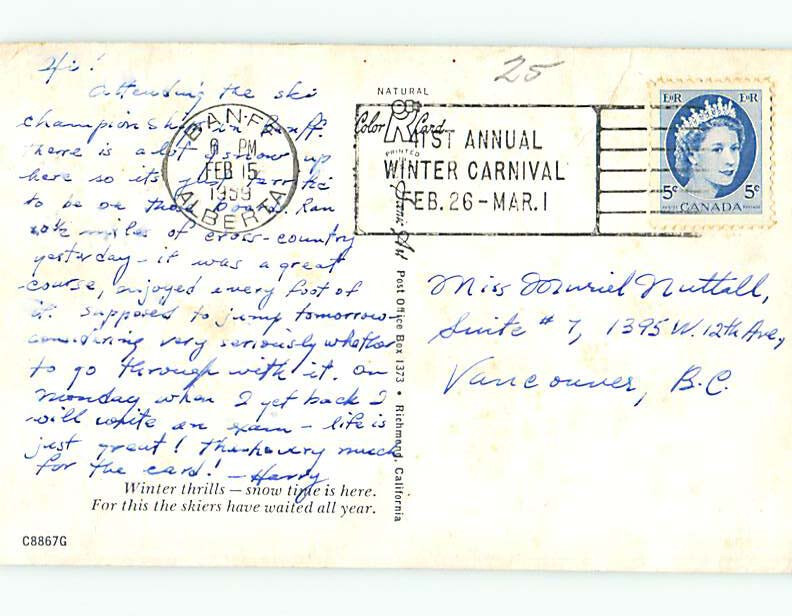 Hi!
Attending the ski
championships in Banff.
There is a lot of snow up
here so it's just terrific
to be on those boards. Ran
10½ miles of cross-country
yesterday - it was a great
course, enjoyed every foot of
it. Supposed to jump tomorrow -
considering very seriously whether
to go through with it. On
Monday when I get back I
will write an exam - life is
just great! Thanks very much
for the card! - Harry
Winter thrills — snow time is here.
For this the skiers have waited all year.
C8867G
25
BANFF
6 PM
FEB 15
1959
ALBERTA
NATURAL
Color Card
PRINTED
41ST ANNUAL
WINTER CARNIVAL
FEB. 26 - MAR. 1
Post Office Box 1373 • Richmond, California
E II R E II R
5¢ 5¢
CANADA
POSTES POSTAGE
Miss Muriel Nuttall,
Suite # 7, 1395 W. 12th Ave.,
Vancouver, B.C.